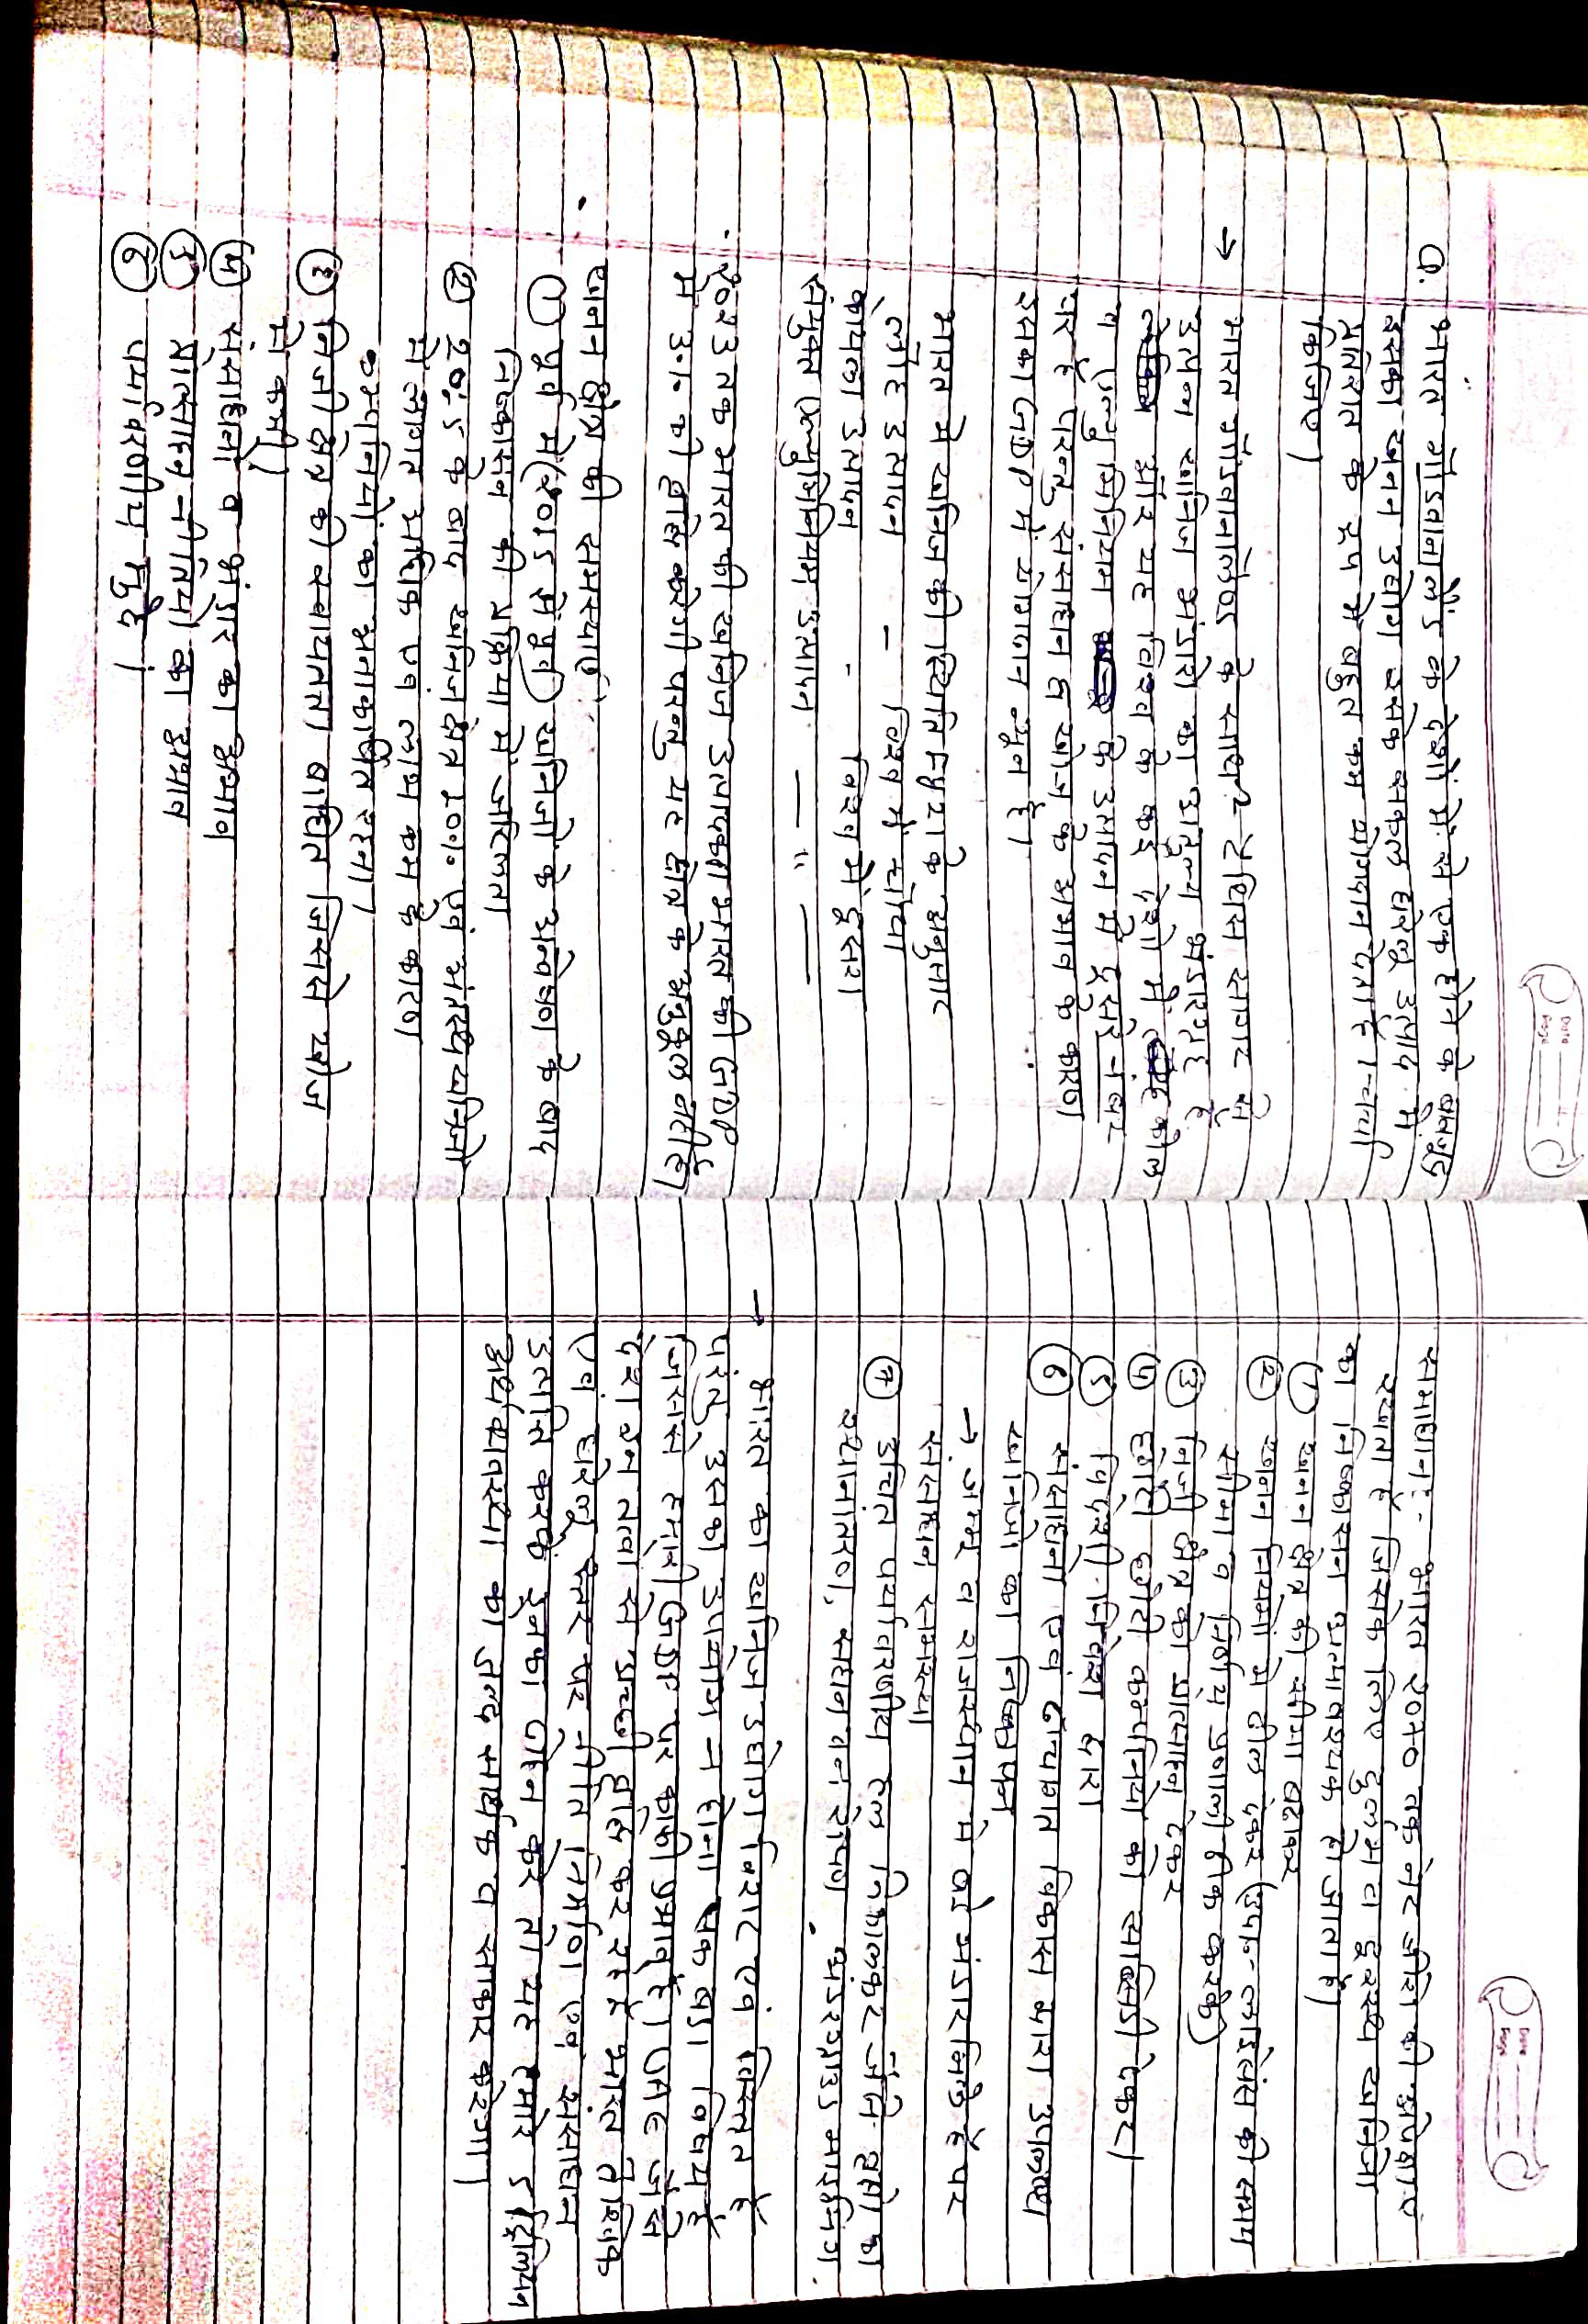 Date
Page
Q. भारत गोंडवानालैंड के देशों में से एक होने के बावजूद
इसका खनन उद्योग इसके सकल घरेलू उत्पाद में
प्रतिशत के रूप में बहुत कम योगदान देता है। चर्चा
किजिए।
→ भारत गोंडवानालैण्ड के साथ टेथिस सागर से
उत्पन्न खनिज भंडारो का अमूल्य भंडारगृह है
और यह विश्व के कई देशो में कोल
व एल्युमिनियम के उत्पादन में दूसरे नंबर
पर है परन्तु संसाधन व खोज के अभाव के कारण
इसका GDP में योगदान न्यून है।
भारत में खनिज की स्थिति के अनुसार
लौह उत्पादन - विश्व में चौथा
कोयला उत्पादन - विश्व में दूसरा
संयुक्त एल्युमिनियम उत्पादन — " —
२०२३ तक भारत की खनिज उत्पादकता भारत की GDP
में ३.% की वृद्धि करेगी परन्तु यह क्षेत्र के अनुकूल नहीं है।
खनन क्षेत्र की समस्याएं :-
① पूर्व में (२०१५ से पूर्व) खनिजों के अन्वेषण के बाद
निष्कासन की प्रक्रिया में जटिलता
② २०१५ के बाद खनिज क्षेत्र १०% एवं अंतःस्थ खनिजों
में लागत अधिक एवं लाभ कम के कारण
कम्पनियों का अनाकर्षित रहना।
③ निजी क्षेत्र की स्वायत्तता बाधित जिससे खोज
में कमी।
④ संसाधनो व भंडार का अभाव
⑤ प्रोत्साहन नीतियो का अभाव
⑥ पर्यावरणीय मुद्दे।
Date
Page
समाधान :- भारत २०७० तक नेट जीरो की अपेक्षाएं
रखता है जिसके लिए दुर्लभ वा दूरस्थ खनिजो
का निष्कासन अत्यावश्यक हो जाता है।
① खनन क्षेत्र की सीमा बढ़ाकर
② खनन नियमो में ढील देकर (एवं लाइसेंस की समय
सीमा व निर्णय प्रणाली ठीक करके)
③ निजी क्षेत्र को प्रोत्साहन देकर
④ छोटी छोटी कम्पनियो को सब्सिडी देकर।
⑤ विदेशी निवेश द्वारा
⑥ संसाधनो एवं ढांचागत विकास द्वारा उपलब्ध
खनिजो का निष्कासन
→ जम्मू व राजस्थान में बड़े भंडार मिले है पर
संसाधन समस्या
⑦ उचित पर्यावरणीय हल निकालकर जैसे वृक्षो का
स्थानान्तरण, सघन वन रोपण, अंडरग्राउंड माइनिंग.
→ भारत का खनिज उद्योग विराट एवं विस्तृत है
परंतु उसका उपयोग न होना एक बड़ा विषय है
जिससे हमारी GDP पर काफी प्रभाव है। UAE जैसे
देश इन तत्वो से अच्छी वृद्धि कर रहे है भारत वैश्विक
एवं घरेलू स्तर पर नीति निर्माण एवं संसाधन
उत्पत्ति करके इनका दोहन करे तो यह हमारे 5 ट्रिलियन
अर्थव्यवस्था को जल्द सार्थक व साकार करेगा।